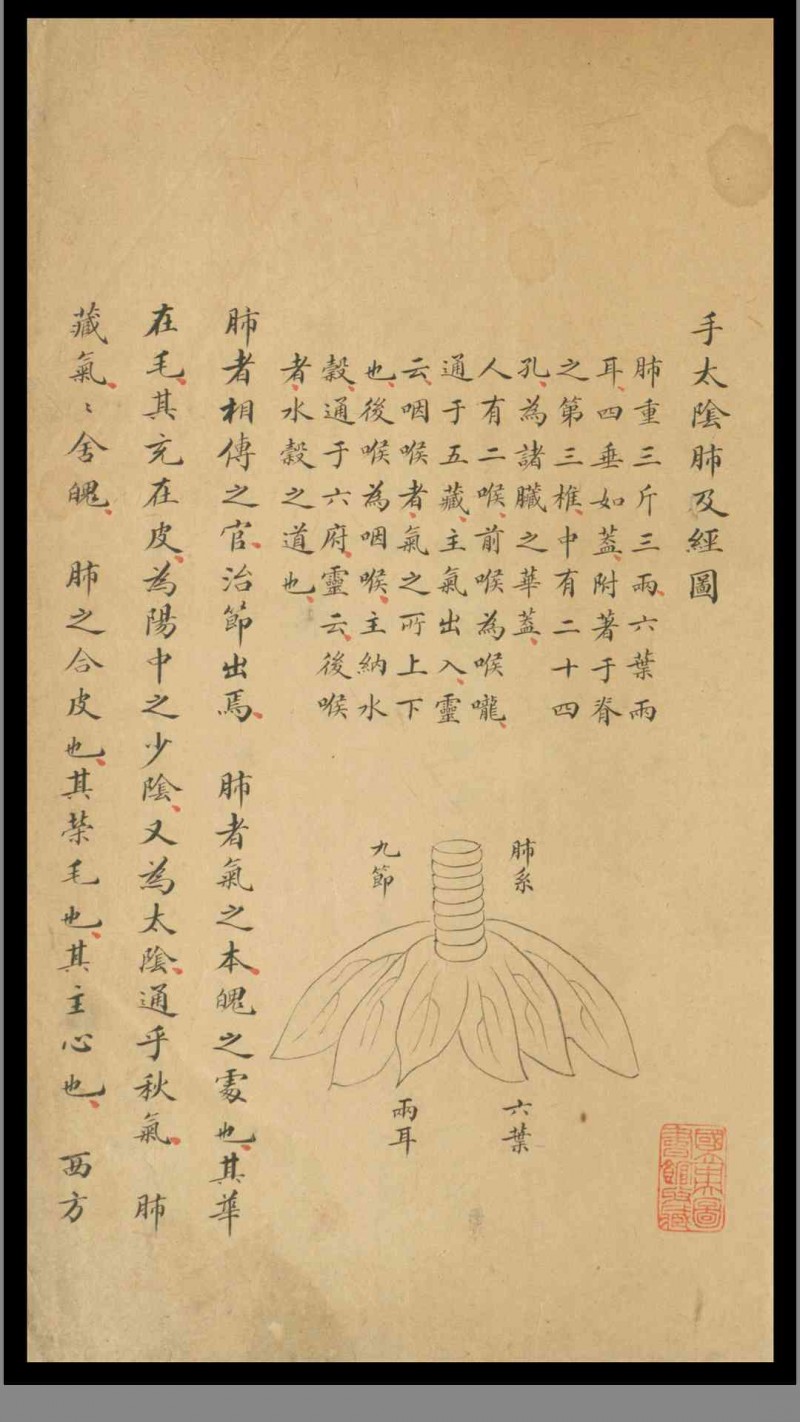 手太陰肺及經圖
肺重三斤三兩六葉兩
耳四垂如蓋附著于脊
之第三椎中有二十四
孔為諸臟之華蓋
人有二喉前喉為喉嚨
通于五藏主氣出入靈
云咽喉者氣之所上下
也後喉為咽喉主納水
穀通于六府靈云後喉
者水穀之道也
肺者相傅之官治節出焉 肺者氣之本魄之處也其華
在毛其充在皮為陽中之少陰又為太陰通乎秋氣 肺
藏氣〻舍魄 肺之合皮也其榮毛也其主心也 西方
肺系
九節
六葉
兩耳